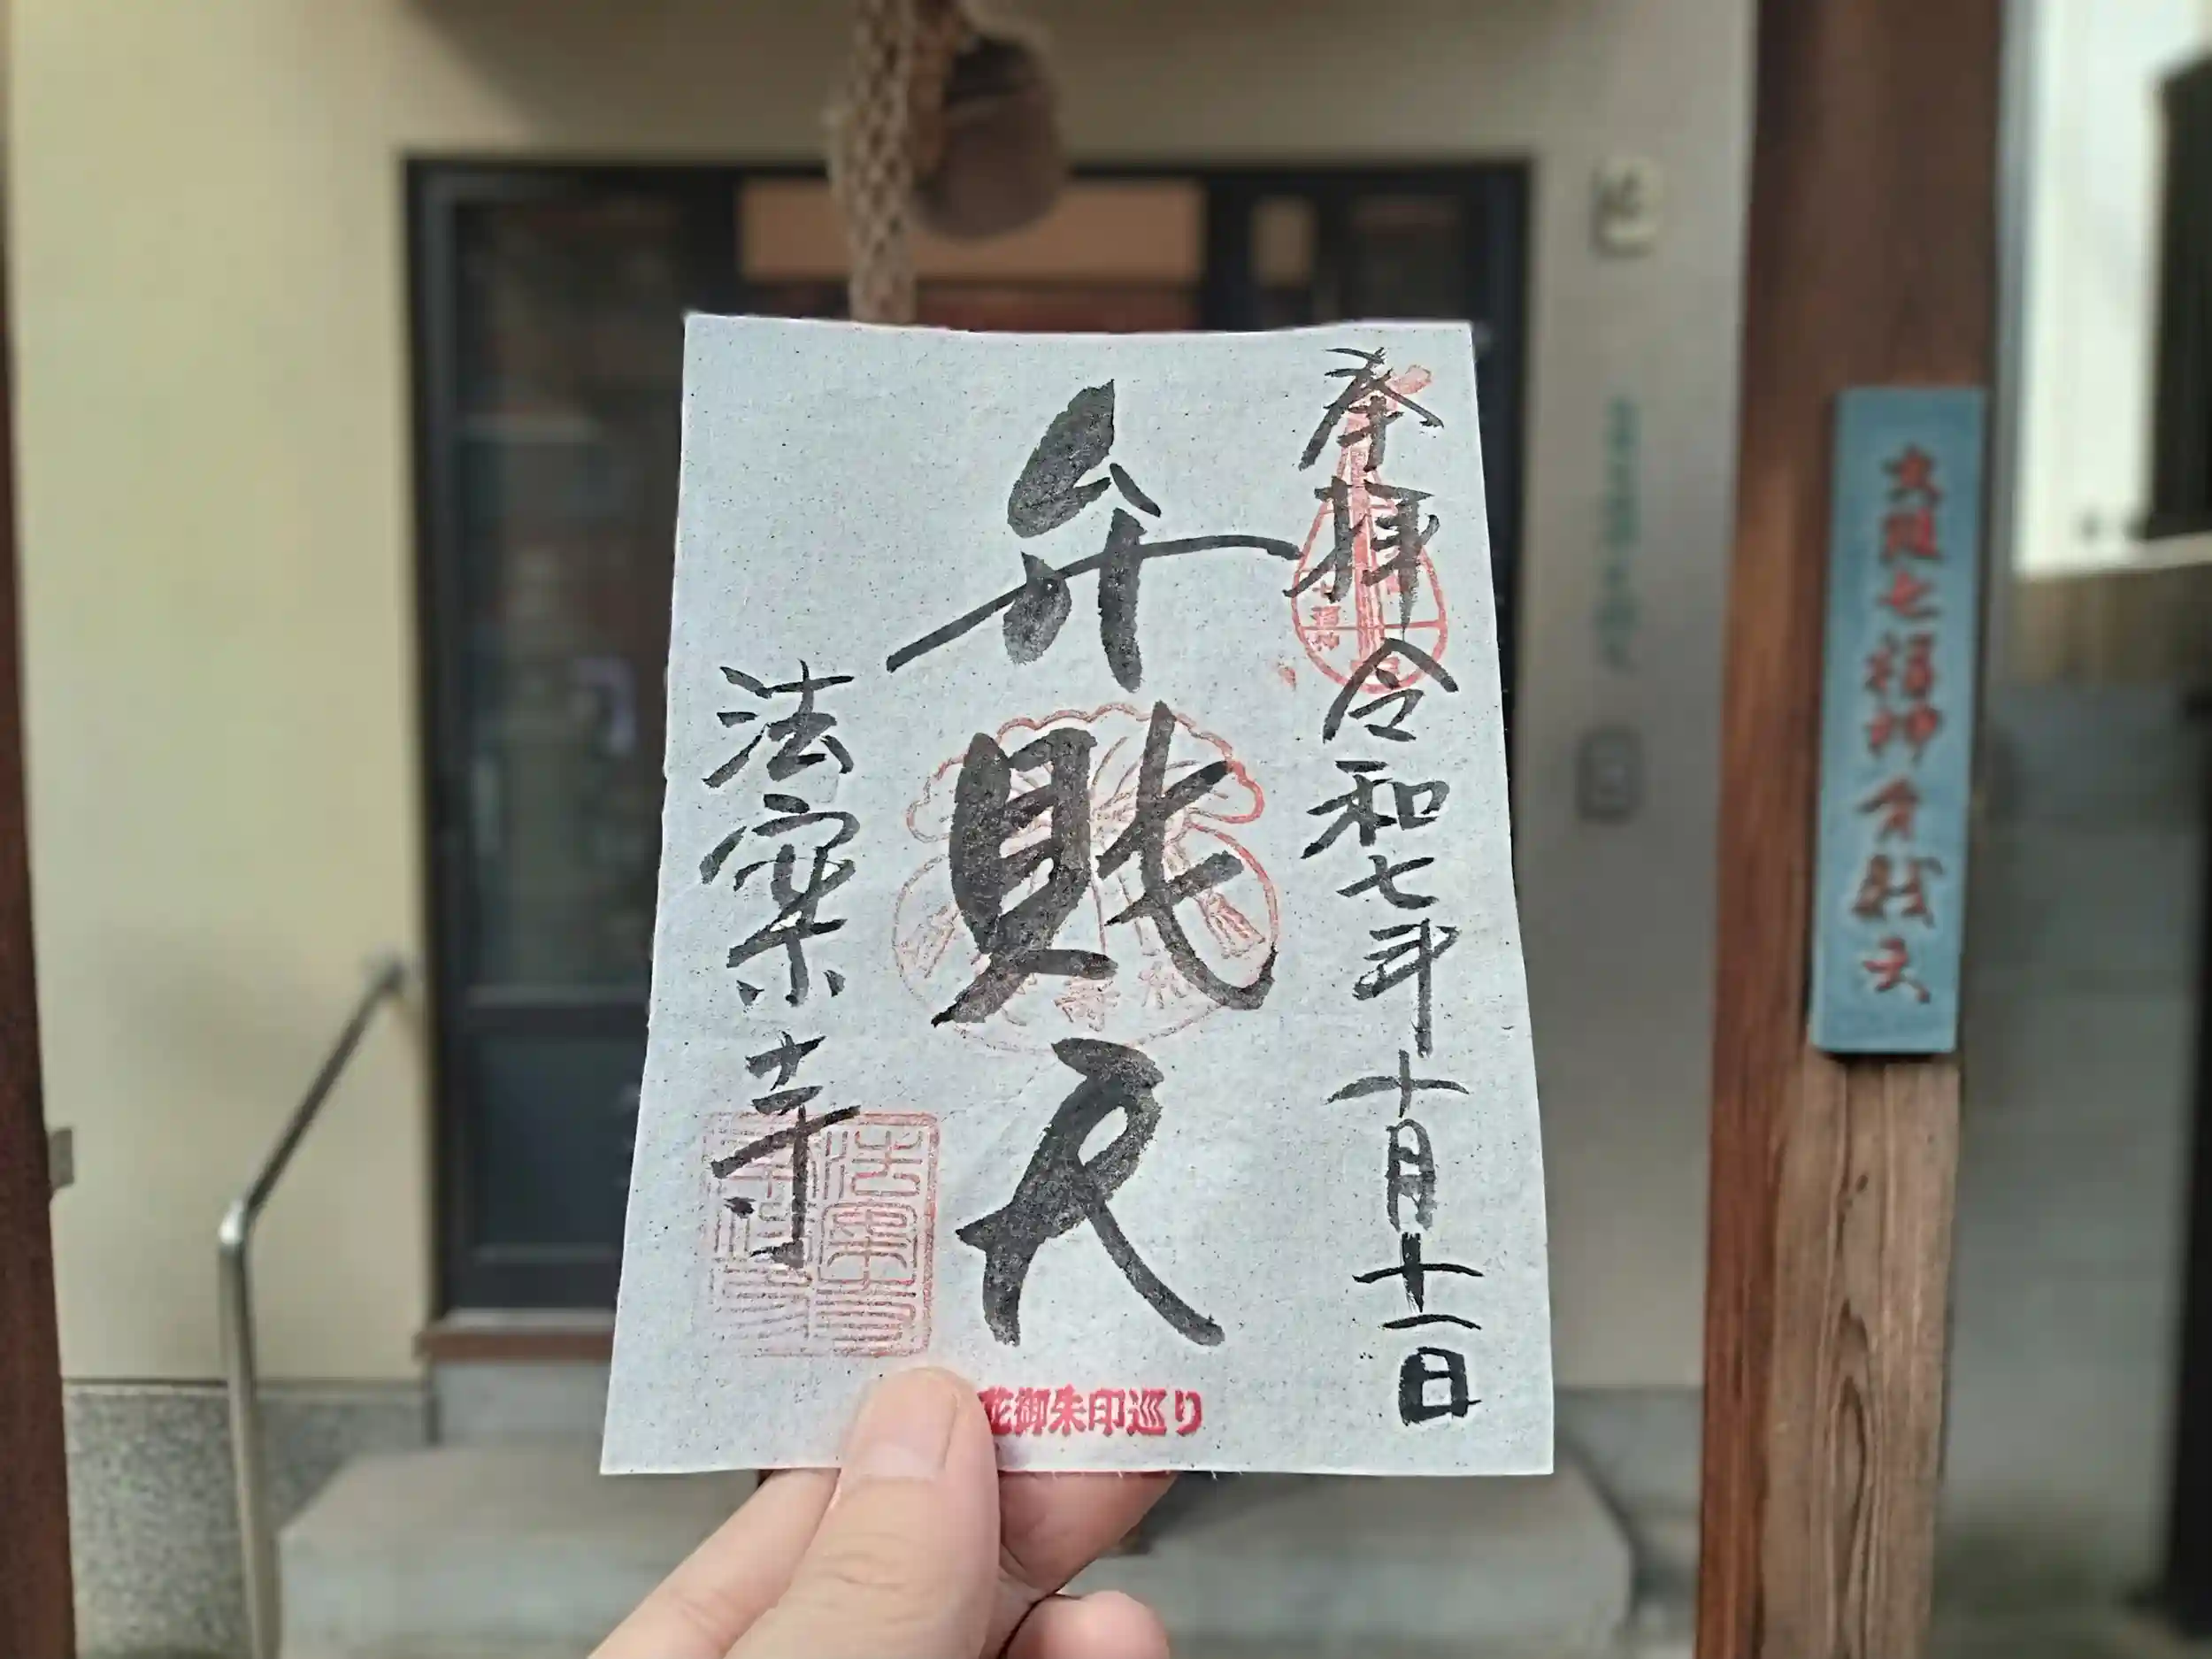 奉拝 令和七年十月十一日
弁財天
法案寺
花御朱印巡り
大阪七福神弁財天